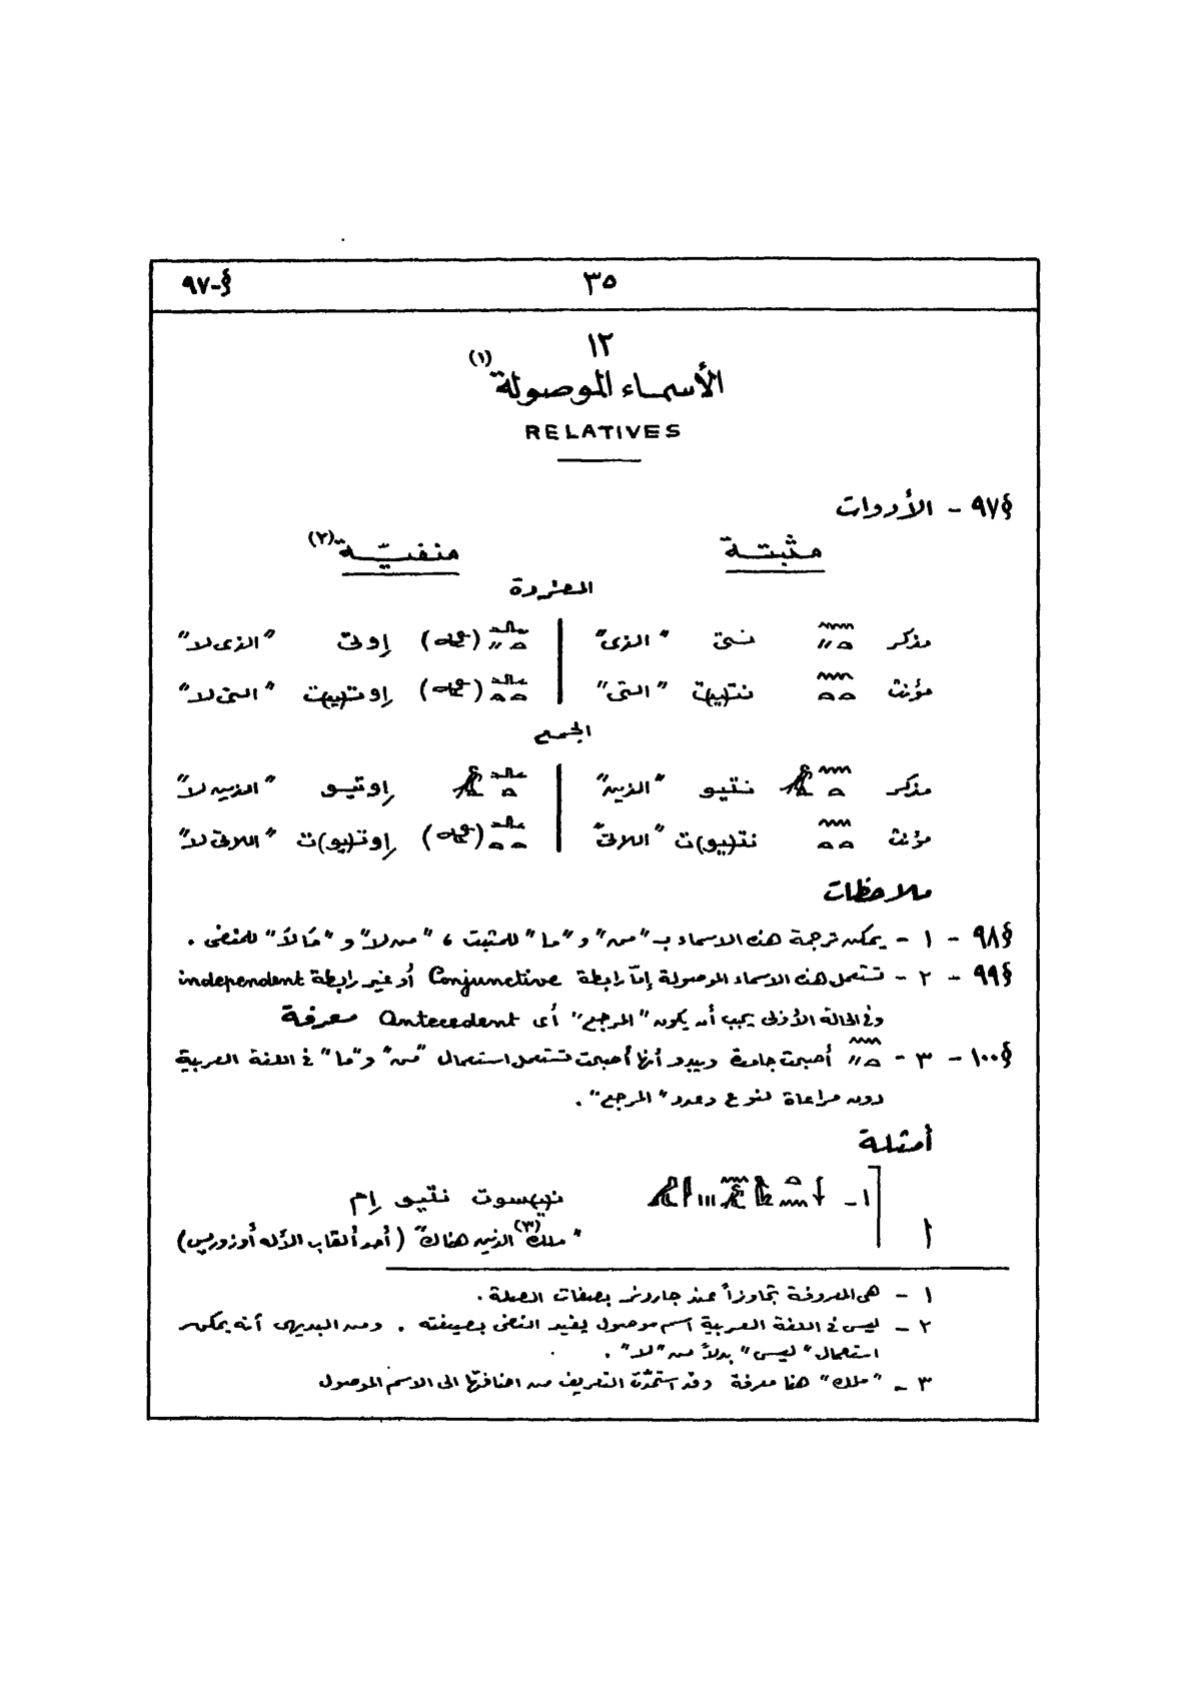 §-٩٧
٣٥
١٢
الأسماء الموصولة (١)
RELATIVES
§٩٧ - الأدوات
مثبتة منفيّة (٢)
المفردة
مذكر نتى "الذى" إوتى "الذى لا"
مؤنث نت(ي)ت "التى" إوت(ي)ت "التى لا"
الجمع
مذكر نتيو "الذين" إوتيو "الذين لا"
مؤنث نت(يو)ت "اللاتى" إوت(يو)ت "اللاتى لا"
ملاحظات
§٩٨ - ١ - يمكن ترجمة هذه الاسماء بـ "من" و "ما" للمثبت ، "من لا" و "مَا لاَ" للمنفى .
§٩٩ - ٢ - تستعمل هذه الاسماء الموصولة إمّا رابطة Conjunctive أو غير رابطة independent
وفى الحالة الأولى يجب أن يكون "المرجع" أى antecedent معرفة
§١٠٠ - ٣ - أصبحت جامدة ويبدو أنها أصبحت تستعمل استعمال "من" و "ما" فى اللغة العربية
دون مراعاة لنوع وعدد "المرجع" .
أمثلة
١ - ن(ي)سوت نتيو إم
أ "ملك (٣) الذين هناك" (أحد ألقاب الآله أوزوريس)
١ - هى المعروفة تجاوزاً عند جاردنر بصفات الصلة .
٢ - ليس فى اللغة العربية اسم موصول يفيد النفى بصيغته . ومن البديهى أنه يمكن
استعمال "ليس" بدلاً من "لا" .
٣ - "ملك" هنا معرفة وقد استمدّت التعريف من اضافتها الى الاسم الموصول